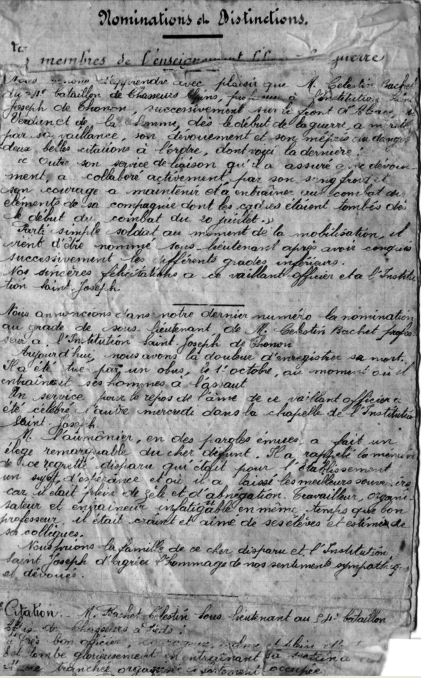 Nominations et Distinctions.
membres de l'enseignement guerre
Nous venons d'apprendre avec plaisir que M. Célestin Bachet
du 4e bataillon de Chasseurs professeur à l'Institution Saint
Joseph de Thonon, successivement sur le front d'Alsace, de
Verdun et de la Somme, dès le début de la guerre, a mérité
par sa vaillance, son dévouement et son mépris du danger
deux belles citations à l'ordre, dont voici la dernière :
" Outre son service de liaison qu'il a assuré avec dévoue-
ment a collaboré activement par son sang froid et
son courage à maintenir et à entraîner au combat des
éléments de sa compagnie dont les cadres étaient tombés dès
le début du combat du 20 juillet. »
Parti simple soldat au moment de la mobilisation, il
vient d'être nommé sous lieutenant après avoir conquis
successivement les différents grades inférieurs.
Nos sincères félicitations à ce vaillant officier et à l'Institu-
tion Saint Joseph.
Nous annoncions dans notre dernier numéro la nomination
au grade de sous lieutenant de M. Célestin Bachet profes
seur à l'Institution Saint Joseph de Thonon
Aujourd'hui, nous avons la douleur d'enregistrer sa mort.
Il a été tué par un obus, le 1er octobre, au moment où il
entraînait ses hommes à l'assaut
Un service pour le repos de l'âme de ce vaillant officier a
été célébré mercredi dans la chapelle de l'Institution
Saint Joseph
M. l'aumônier, en des paroles émues, a fait un
éloge remarquable du cher défunt. Il a rappelé la mémoire
de ce regretté disparu qui était pour l'établissement
un sujet d'espérance et où il a laissé les meilleurs souvenirs
car il était plein de zèle et d'abnégation. Travailleur, organi
sateur et entraîneur infatigable en même temps que bon
professeur, il était craint et aimé de ses élèves et estimé de
ses collègues.
Nous prions la famille de ce cher disparu et l'Institution
Saint Joseph d'agréer l'hommage de nos sentiments sympathiques
et dévoués.
Citation. - M. Bachet Célestin sous lieutenant au 54e bataillon
de chasseurs à pied :
" Très bon officier
Est tombé glorieusement en entraînant sa section à
d'une tranchée organisée et fortement occupée